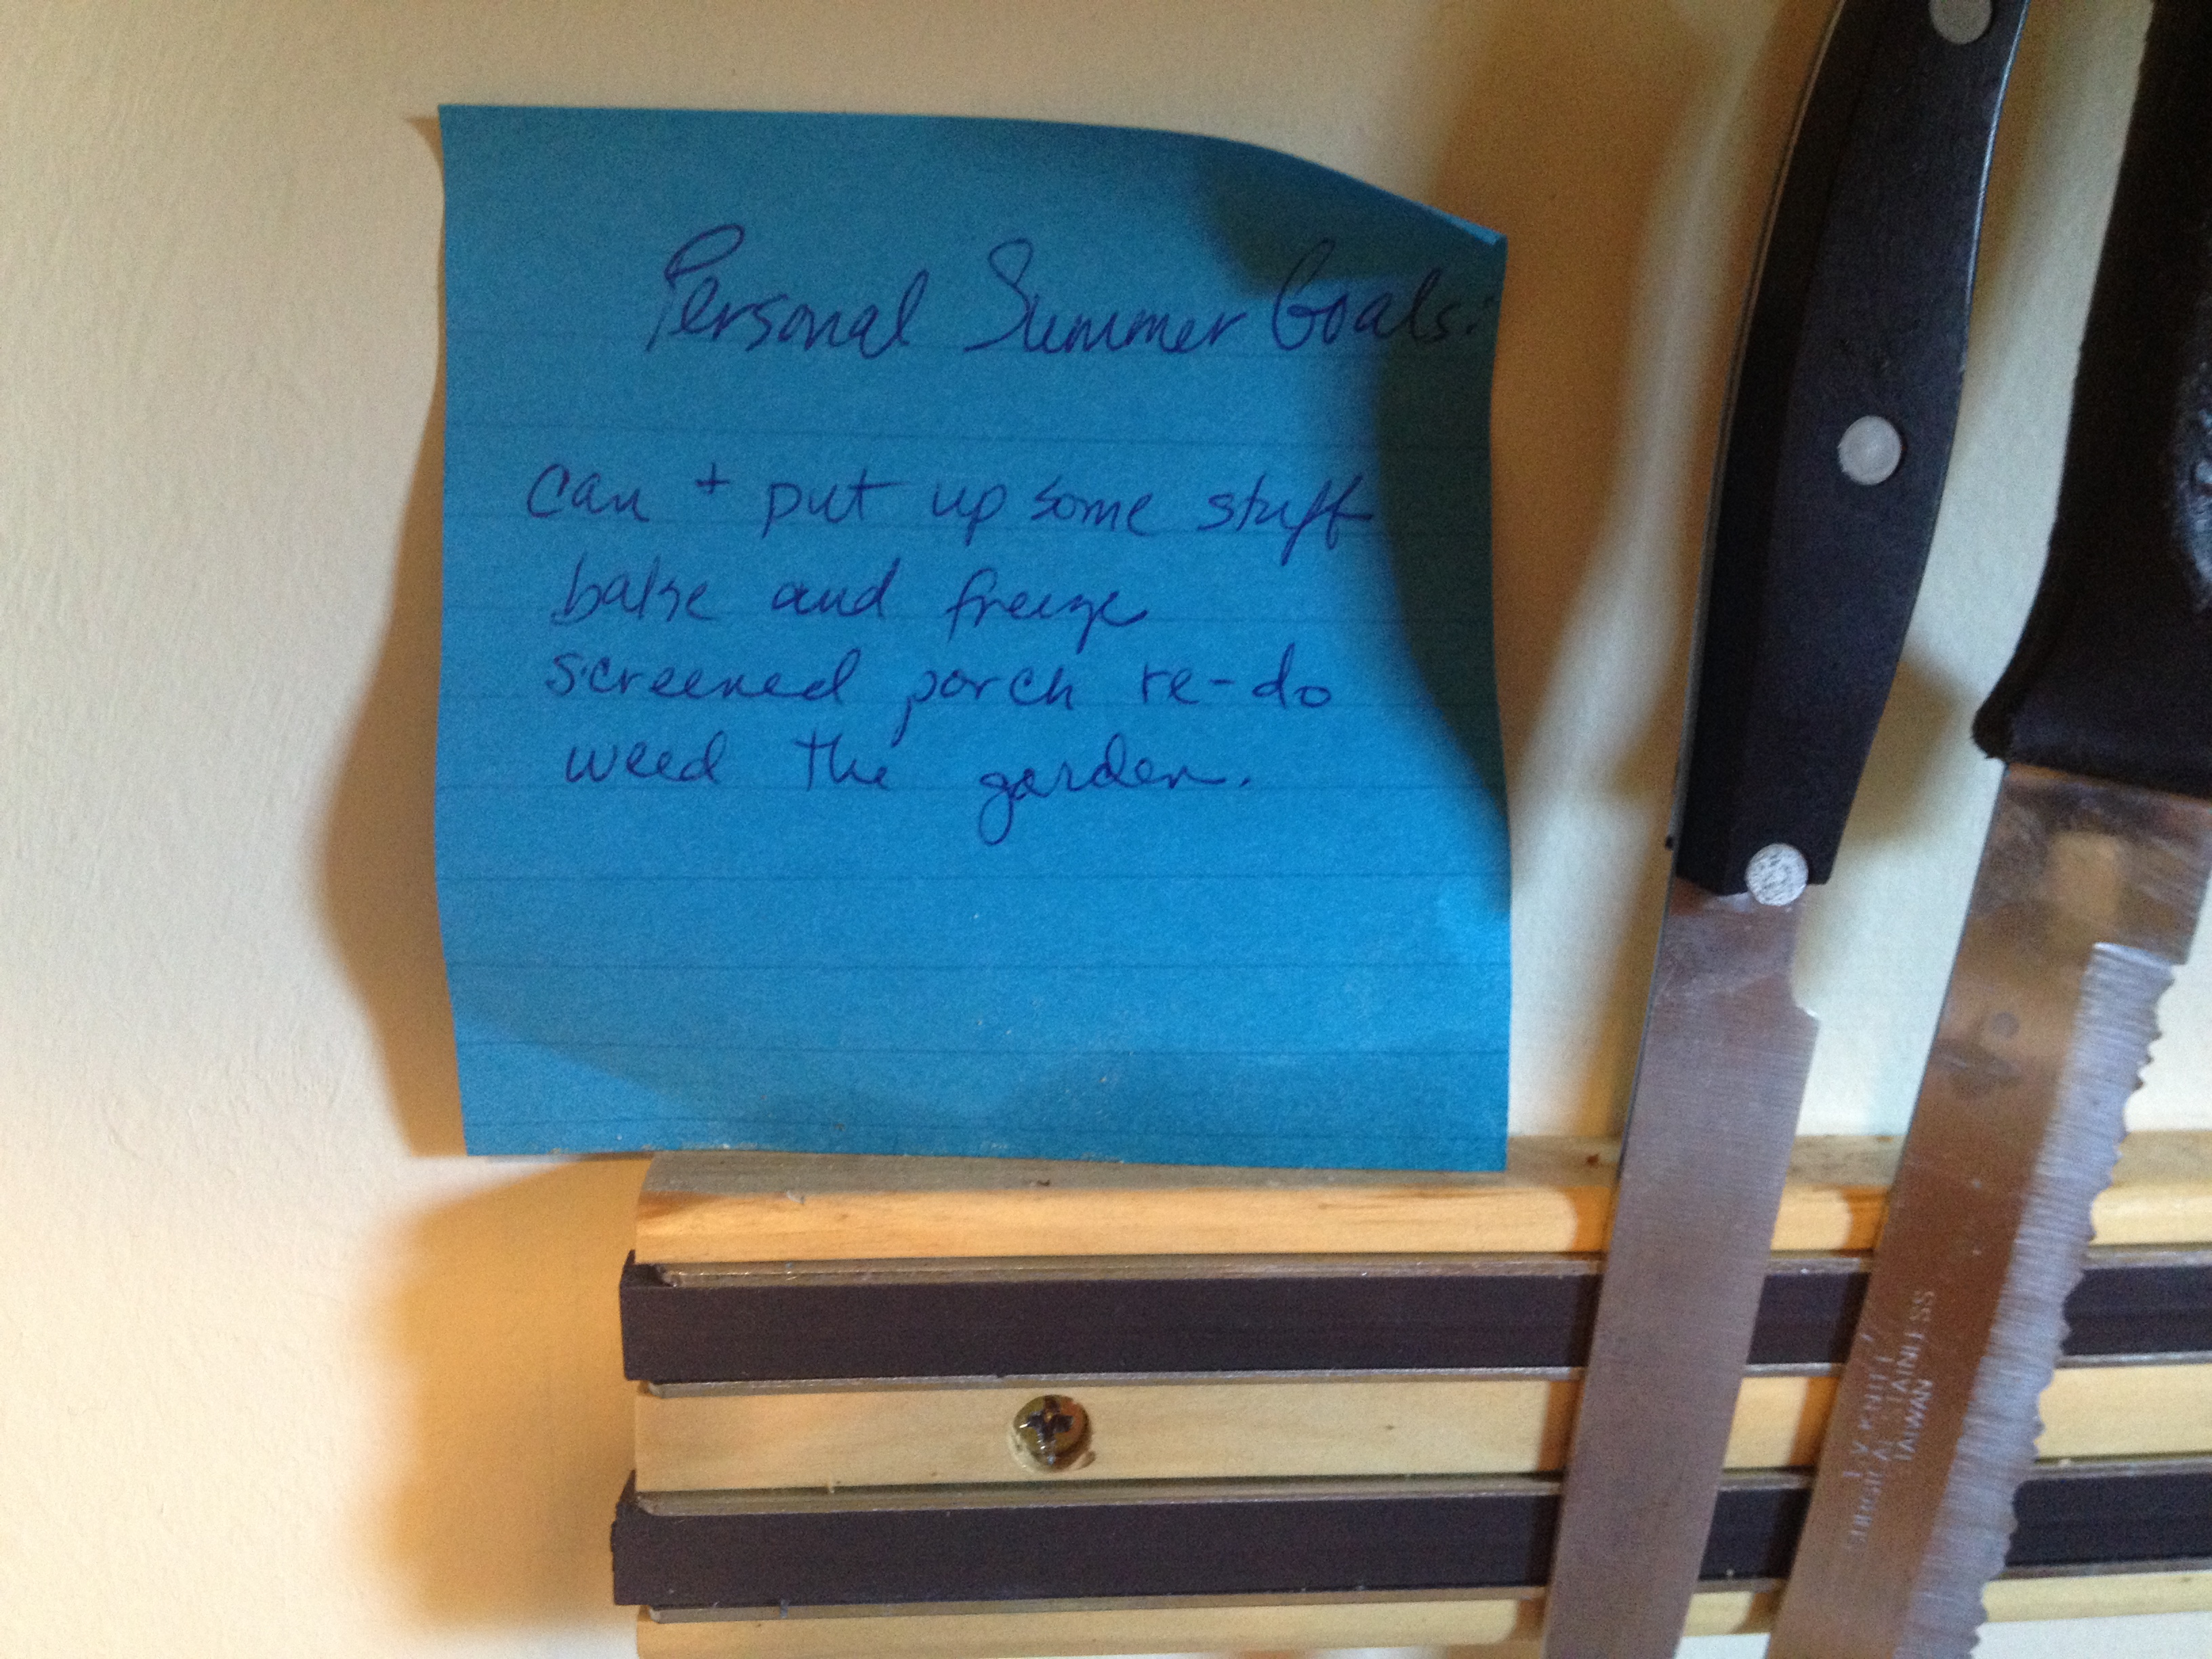 Personal Summer Goals:
can + put up some stuff
bake and freeze
screened porch re-do
weed the garden.
STAINLESS
TAIWAN